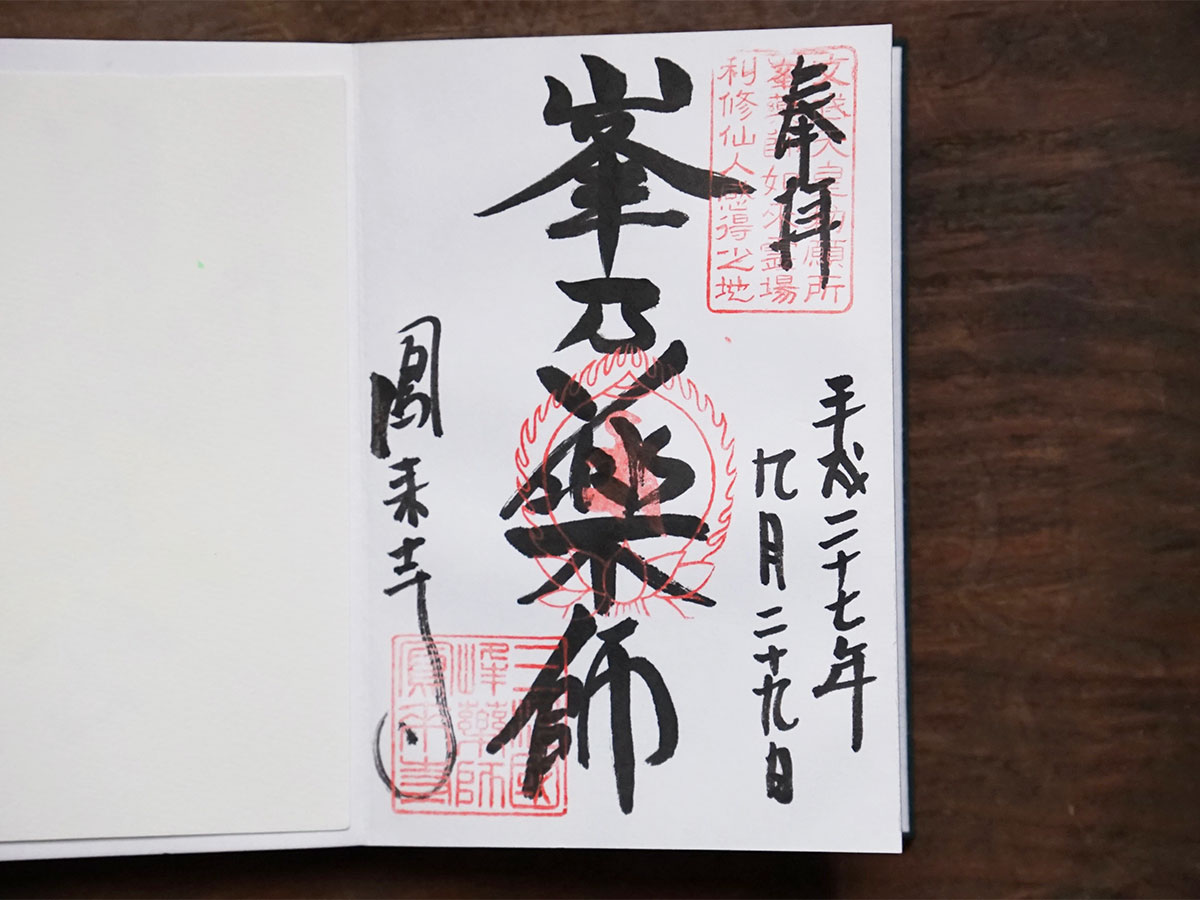 奉拝
文武天皇勅願所
峯薬師如来霊場
利修仙人感得之地
平成二十七年
九月二十九日
峯乃薬師
鳳来寺
三河國
峰薬師